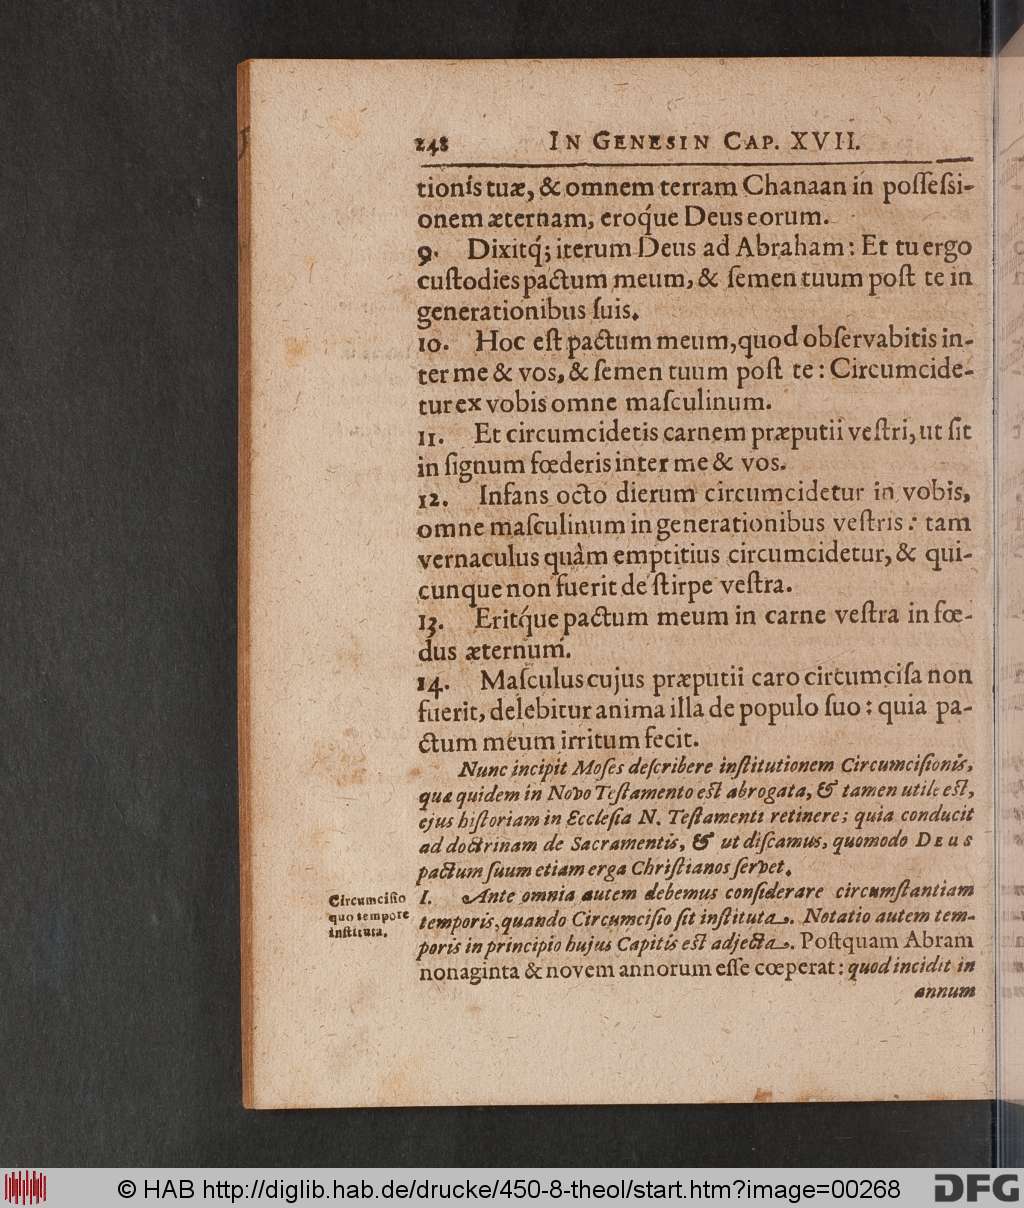 248 IN GENESIN CAP. XVII.
tionis tuæ, & omnem terram Chanaan in poſſeſsi-
onem æternam, eroq́ue Deus eorum.
9. Dixitq́; iterum Deus ad Abraham: Et tu ergo
cuſtodies pactum meum, & ſemen tuum poſt te in
generationibus ſuis.
10. Hoc eſt pactum meum, quod obſervabitis in-
ter me & vos, & ſemen tuum poſt te: Circumcide-
tur ex vobis omne maſculinum.
11. Et circumcidetis carnem præputii veſtri, ut ſit
in ſignum fœderis inter me & vos.
12. Infans octo dierum circumcidetur in vobis,
omne maſculinum in generationibus veſtris: tam
vernaculus quàm emptitius circumcidetur, & qui-
cunque non fuerit de ſtirpe veſtra.
13. Eritq́ue pactum meum in carne veſtra in fœ-
dus æternum.
14. Maſculus cujus præputii caro circumciſa non
fuerit, delebitur anima illa de populo ſuo: quia pa-
ctum meum irritum fecit.
Nunc incipit Moſes deſcribere inſtitutionem Circumciſionis,
quæ quidem in Novo Teſtamento eſt abrogata, & tamen utile eſt,
ejus hiſtoriam in Eccleſia N. Teſtamenti retinere; quia conducit
ad doctrinam de Sacramentis, & ut diſcamus, quomodo DEUS
pactum ſuum etiam erga Chriſtianos ſervet.
Circumciſio
quo tempore
inſtituta.
I. Ante omnia autem debemus conſiderare circumſtantiam
temporis, quando Circumciſio ſit inſtituta. Notatio autem tem-
poris in principio hujus Capitis eſt adjecta. Poſtquam Abram
nonaginta & novem annorum eſſe cœperat: quod incidit in
annum
© HAB http://diglib.hab.de/drucke/450-8-theol/start.htm?image=00268
DFG